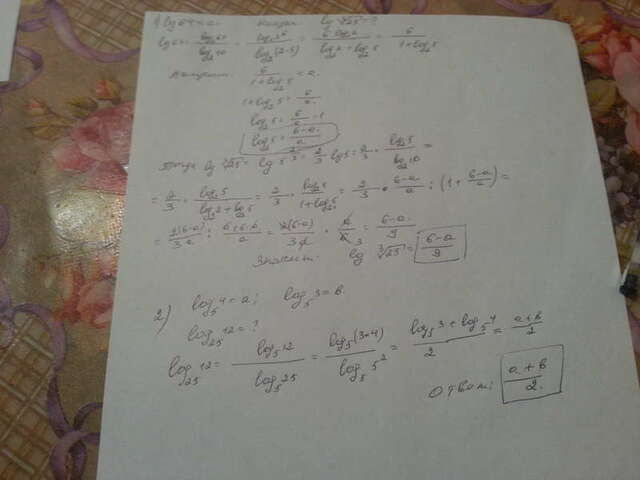 1) lg 64 = a. Найти: lg ∛25 = ?
lg 64 = log₂64 / log₂10 = log₂2⁶ / log₂(2·5) = 6·log₂2 / (log₂2 + log₂5) = 6 / (1+log₂5)
6 / (1+log₂5) = a.
1+log₂5 = 6/a
log₂5 = 6/a - 1
log₂5 = (6-a)/a
Тогда lg ∛25 = lg 5^(2/3) = 2/3 lg 5 = 2/3 · log₂5 / log₂10 =
= 2/3 · log₂5 / (log₂2 + log₂5) = 2/3 · log₂5 / (1+log₂5) = 2/3 · (6-a)/a : (1 + (6-a)/a) =
= 2(6-a)/3a : (a+6-a)/a = 2(6-a)/3a · a/6 = (6-a)/9
Значит: lg ∛25 = (6-a)/9
2) log₅4 = a; log₅3 = b.
log₂₅12 = ?
log₂₅12 = log₅12 / log₅25 = log₅(3·4) / log₅5² = (log₅3 + log₅4) / 2 = (a+b)/2
Ответ: (a+b)/2.